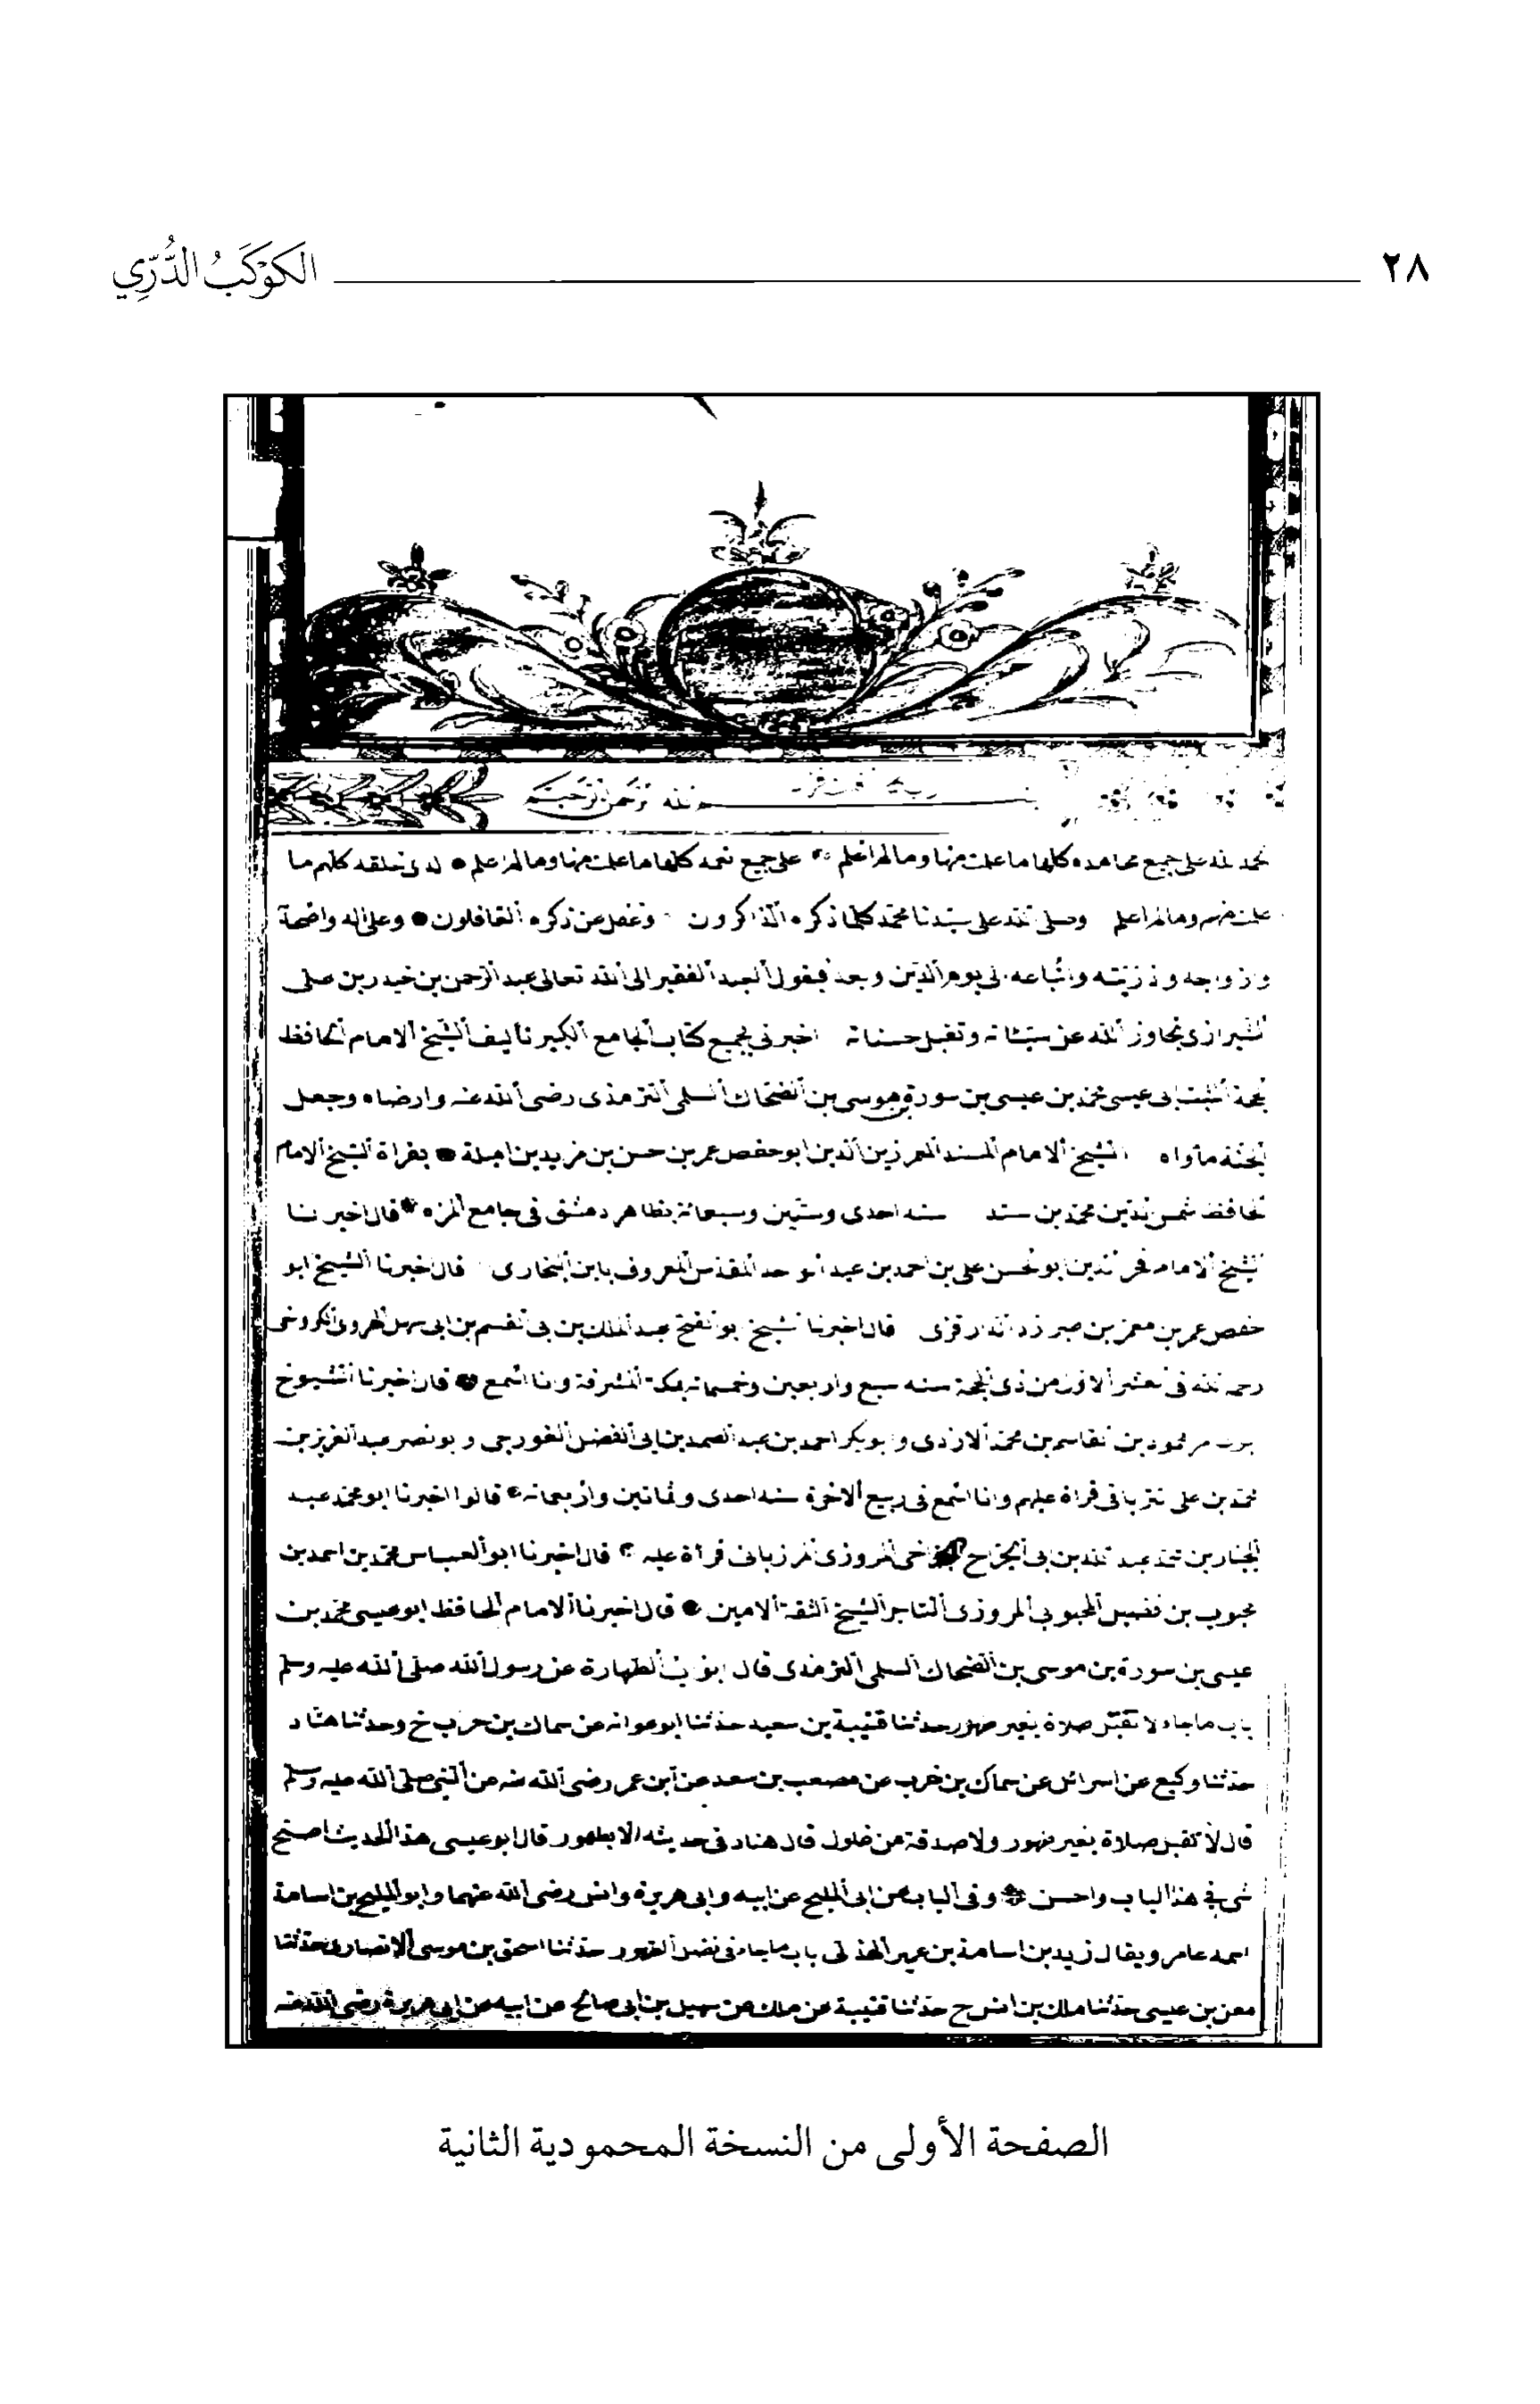 ٢٨ الكَوْكَبُ الدُّرِّي
الحمد لله على جميع محامده كلها ما علمت منها وما لم اعلم على جميع نعمه كلها ما علمت منها وما لم اعلم خلقه كلهم ما
علمت منهم وما لم اعلم وصلى الله على سيدنا محمد كلما ذكره الذاكرون وغفل عن ذكره الغافلون وعلى اله واصحابه
وازواجه وذريته واتباعه الى يوم الدين وبعد فيقول العبد الفقير الى الله تعالى عبد الرحمن بن خيدر بن على
الشيرازى تجاوز الله عن سيئاته وتقبل حسناته اخبرنى بجميع كتاب الجامع الكبير تأليف الشيخ الامام الحافظ
ابى عيسى محمد بن عيسى بن سورة بن موسى بن الضحاك السلمى الترمذى رضى الله عنه وارضاه وجعل
الجنة مأواه الشيخ الامام المسند المعمر زين الدين ابو حفص عمر بن حسن بن مزيد بن اميلة بقراة الشيخ الامام
الحافظ شمس الدين محمد بن سند سنه احدى وستين وسبعمائة بظاهر دمشق فى جامع المزه قال اخبرنا
الشيخ الامام فخر الدين ابو الحسن على بن احمد بن عبد الواحد المقدسى المعروف بابن البخارى قال اخبرنا الشيخ ابو
حفص عمر بن معمر بن طبرزد الدارقزى قال اخبرنا الشيخ ابو الفتح عبد الملك بن ابى القسم بن ابى سهل الهروى الكروخى
رحمه الله فى العشر الاول من ذى الحجة سنه سبع واربعين وخمسمائة بمكة المشرفة وانا اسمع قال اخبرنا الشيوخ
محمود بن القاسم بن محمد الازدى وابو بكر احمد بن عبد الصمد بن ابى الفضل الغورجى وابو نصر عبد العزيز بن
محمد بن على الترياقى قراة عليهم وانا اسمع فى ربيع الاخرة سنه احدى وثمانين واربعمائة قالوا اخبرنا ابو محمد عبد
الجبار بن محمد بن عبد الله بن ابى الجراح الجراحى المروزى المرزبانى قرأة عليه قال اخبرنا ابو العباس محمد بن احمد بن
محبوب بن فضيل المحبوبى المروزى التاجر الشيخ الثقة الامين قال اخبرنا الامام الحافظ ابو عيسى محمد بن
عيسى بن سورة بن موسى بن الضحاك السلمى الترمذى قال ابواب الطهارة عن رسول الله صلى الله عليه وسلم
باب ما جاء لا تقبل صلاة بغير طهور حدثنا قتيبة بن سعيد حدثنا ابو عوانه عن سماك بن حرب ح وحدثنا هناد
حدثنا وكيع عن اسرائل عن سماك بن حرب عن مصعب بن سعد عن ابن عمر رضى الله عنه عن النبى صلى الله عليه وسلم
قال لا تقبل صلاة بغير طهور ولا صدقة من غلول قال هناد فى حديثه الا بطهور قال ابو عيسى هذا الحديث اصح
شى فى هذا الباب واحسن وفى الباب عن ابى المليح عن ابيه وابى هريرة وانس رضى الله عنهما وابو المليح بن اسامة
اسمه عامر ويقال زيد بن اسامة بن عمير الهذلى باب ما جاء فى فضل الطهور حدثنا اسحق بن موسى الانصارى حدثنا
معن بن عيسى حدثنا ملك بن انس ح حدثنا قتيبة عن ملك عن سهيل بن ابى صالح عن ابيه عن ابى هريرة رضى الله عنه
الصفحة الأولى من النسخة المحمودية الثانية